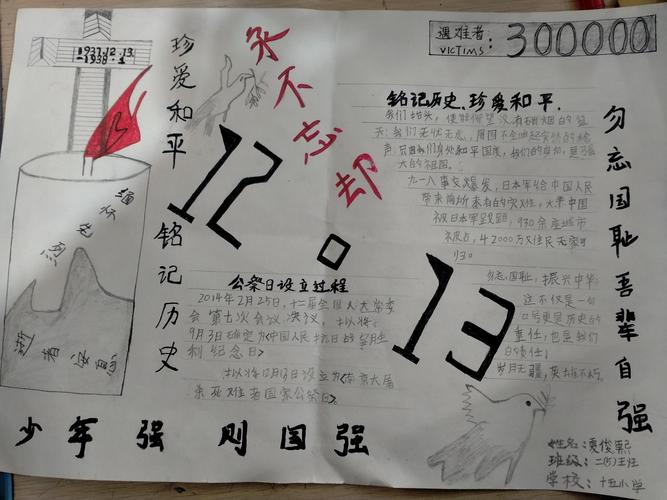 1937.12.13
-1938.1
缅怀先烈
逝者安息
珍爱和平
铭记历史
永不忘却
遇难者:
VICTIMS:
300000
12.13
铭记历史,珍爱和平.
我们抬头,便能仰望没有硝烟的蓝
天;我们无忧无虑,
声;只因我们身处和平国度,我们的背后,是强
大的祖国.
九一八事变爆发,日本军给中国人民
带来前所未有的灾难,大半中国
被日本军践踏,930余座城市
被占,42000万难民无家可
归。
勿忘国耻,振兴中华
这不仅是一句
口号更是历史的
重任,也是我们
的责任;
岁月无疆,英雄不朽.
公祭日设立过程
2014年2月25日,十二届全国人大常委
会第七次会议决议,拟将
9月3日确定为<中国人民抗日战争胜
利纪念日>
拟将12月13日设立为<南京大屠
杀死难者国家公祭日>
勿忘国耻吾辈自强
少年强则国强
姓名:夏俊熙
班级:二(5)王班
学校:十五小学